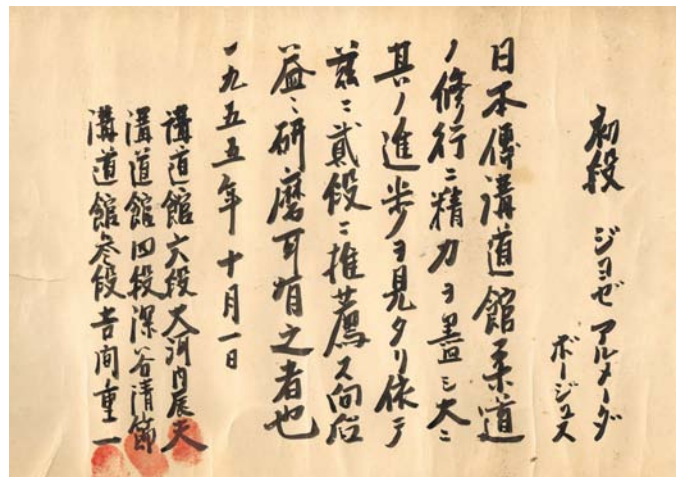 初段 ジヨゼ アルメーダ
ボージエス
日本傳溝道館柔道
ノ修行ニ精力ヲ盡シ大ニ
其ノ進歩ヲ見タリ依テ
茲ニ貳段ニ推薦ス向后
益〻研磨可有之者也
一九五五年十月一日
講道館六段大河内辰夫
溝道館四段深谷清節
溝道館参段吉間重一